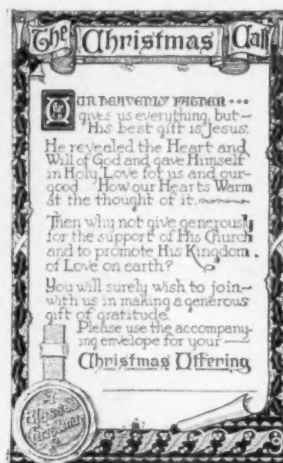 The Christmas Call
OUR HEAVENLY FATHER ...
gives us everything, but—
His best gift is Jesus.
He revealed the Heart and
Will of God and gave Himself
in Holy Love for us and our-
good How our Hearts Warm
at the thought of it.
Then why not give generously
for the support of His Church
and to promote His Kingdom
of Love on earth?
You will surely wish to join—
with us in making a generous
gift of gratitude.
Please use the accompany-
ing envelope for your —
Christmas Offering
A
Blessed
Christmas